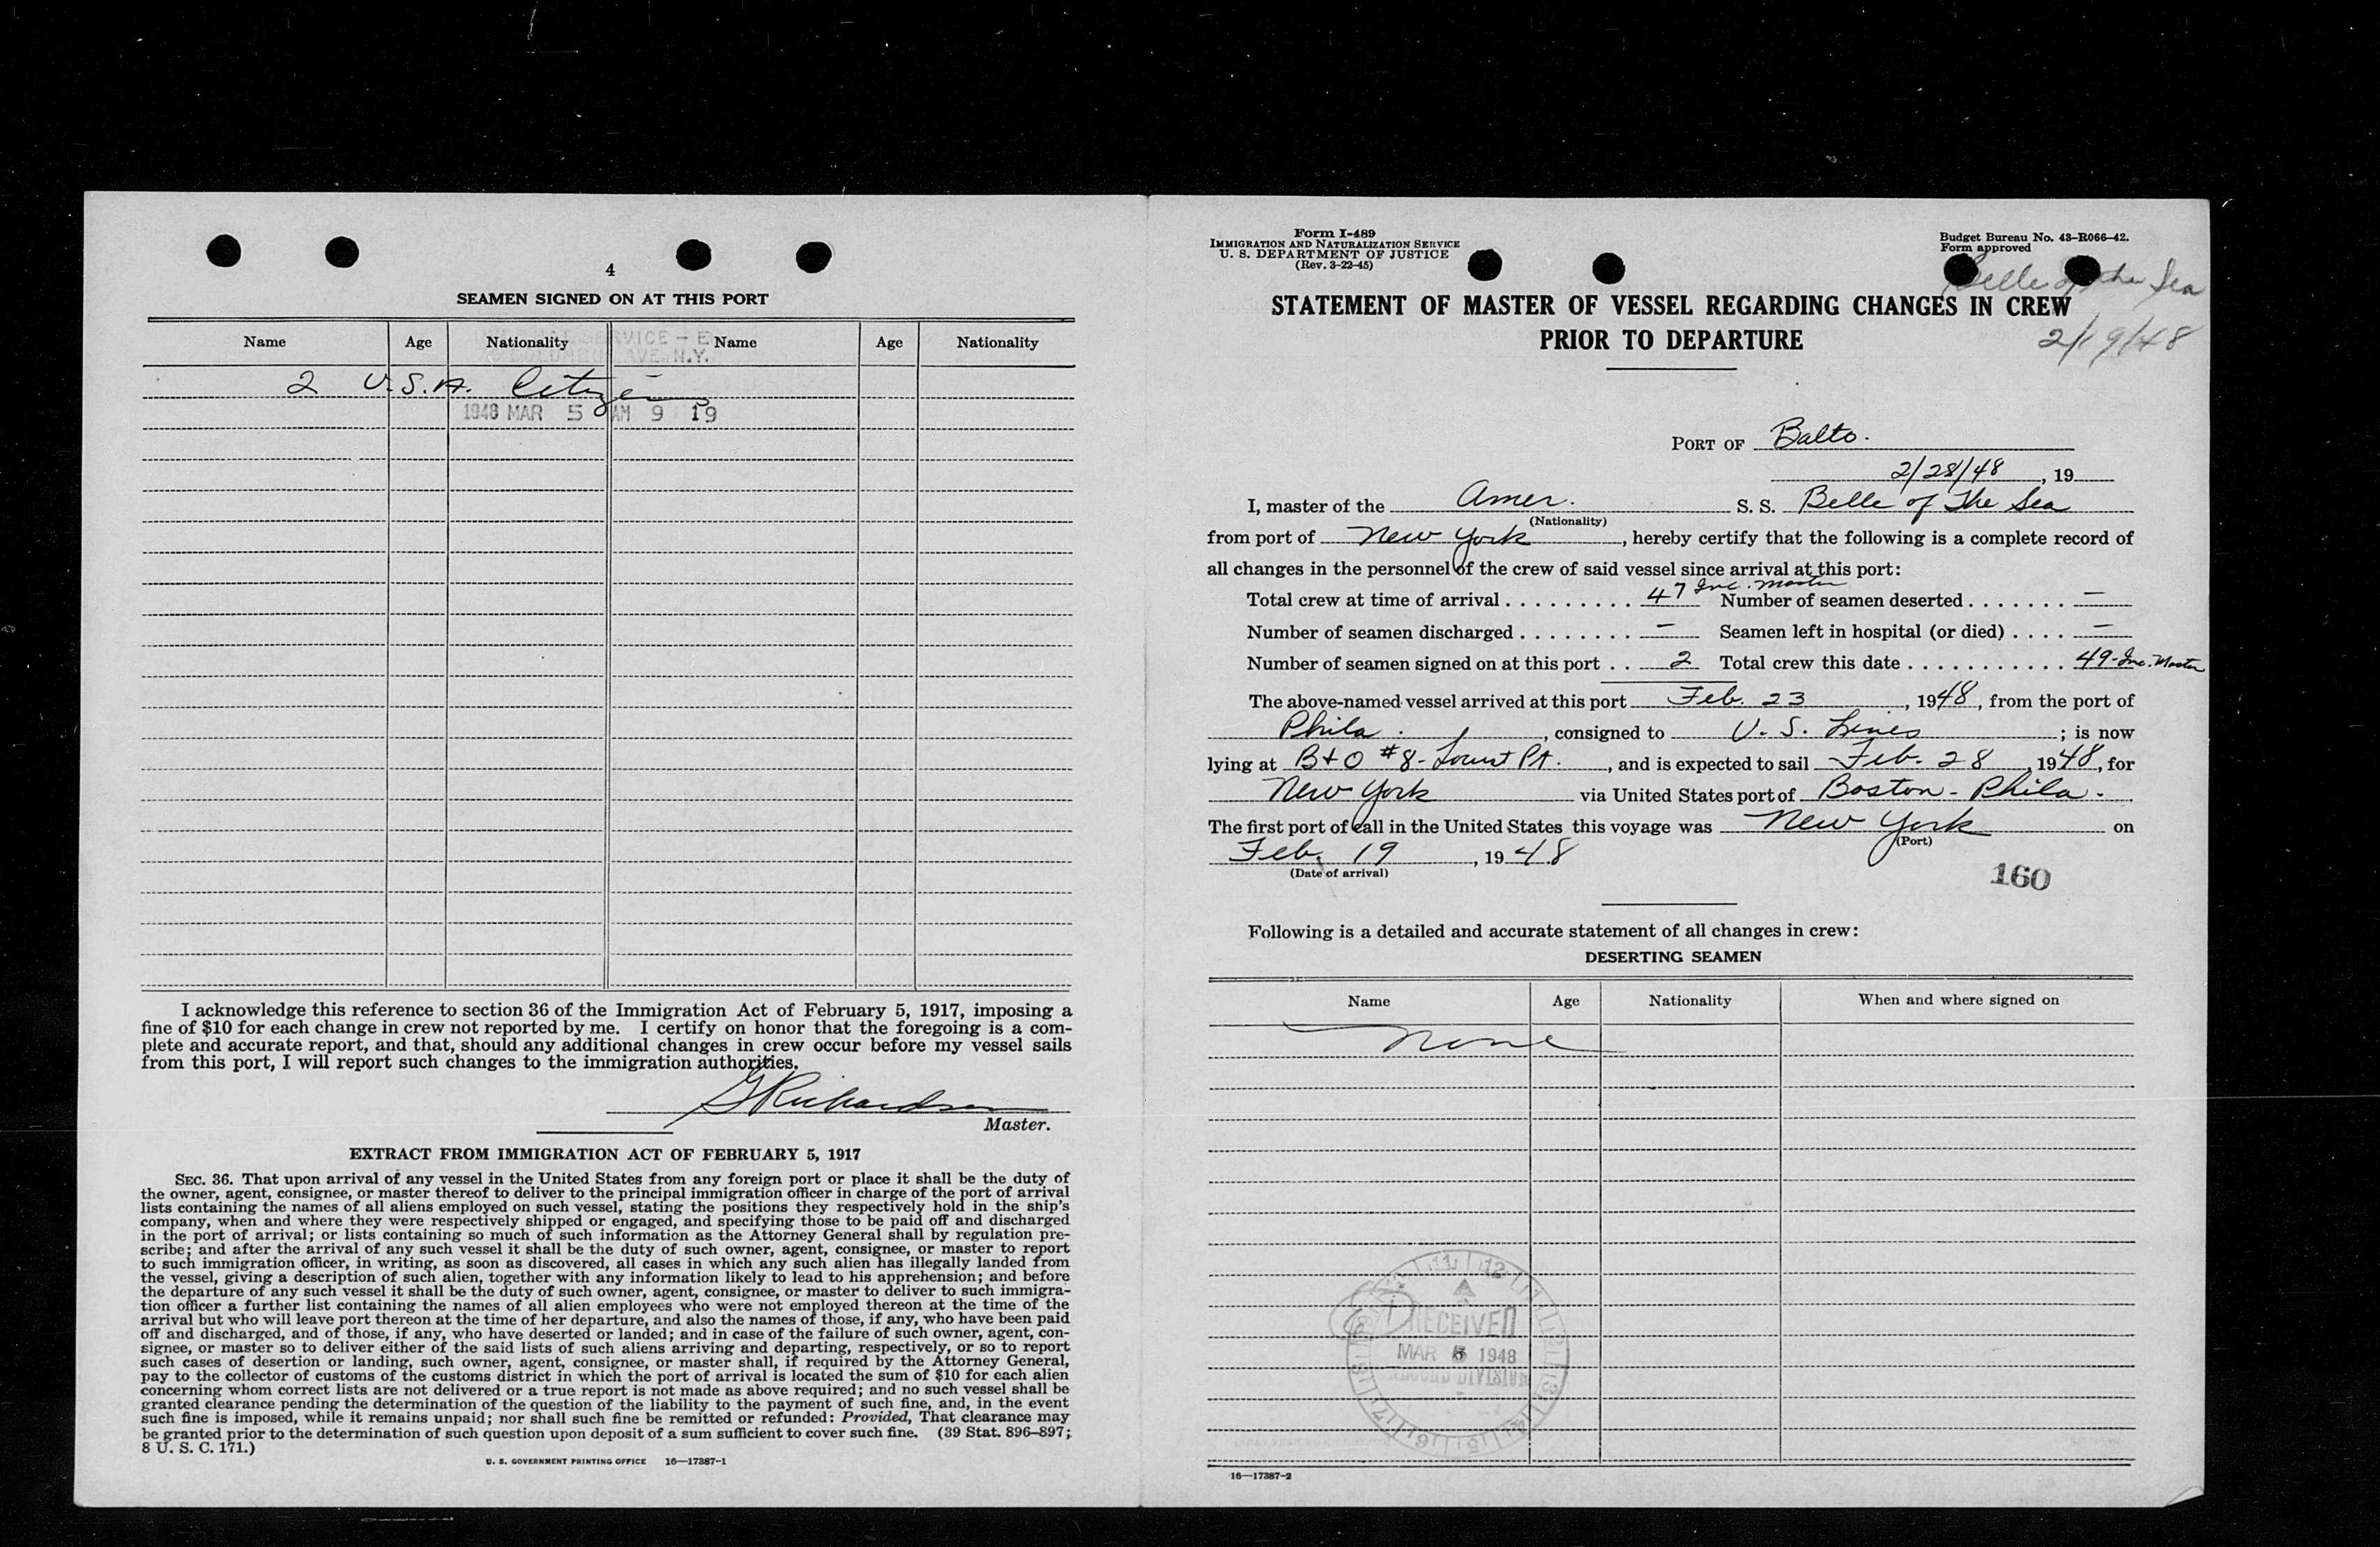 4
SEAMEN SIGNED ON AT THIS PORT
Name Age Nationality Name Age Nationality
RVICE — E
AVE. N.Y.
2 U.S.A. Citizen
1948 MAR 5 AM 9 19
I acknowledge this reference to section 36 of the Immigration Act of February 5, 1917, imposing a
fine of $10 for each change in crew not reported by me. I certify on honor that the foregoing is a com-
plete and accurate report, and that, should any additional changes in crew occur before my vessel sails
from this port, I will report such changes to the immigration authorities.
G Richardson
Master.
EXTRACT FROM IMMIGRATION ACT OF FEBRUARY 5, 1917
SEC. 36. That upon arrival of any vessel in the United States from any foreign port or place it shall be the duty of
the owner, agent, consignee, or master thereof to deliver to the principal immigration officer in charge of the port of arrival
lists containing the names of all aliens employed on such vessel, stating the positions they respectively hold in the ship's
company, when and where they were respectively shipped or engaged, and specifying those to be paid off and discharged
in the port of arrival; or lists containing so much of such information as the Attorney General shall by regulation pre-
scribe; and after the arrival of any such vessel it shall be the duty of such owner, agent, consignee, or master to report
to such immigration officer, in writing, as soon as discovered, all cases in which any such alien has illegally landed from
the vessel, giving a description of such alien, together with any information likely to lead to his apprehension; and before
the departure of any such vessel it shall be the duty of such owner, agent, consignee, or master to deliver to such immigra-
tion officer a further list containing the names of all alien employees who were not employed thereon at the time of the
arrival but who will leave port thereon at the time of her departure, and also the names of those, if any, who have been paid
off and discharged, and of those, if any, who have deserted or landed; and in case of the failure of such owner, agent, con-
signee, or master so to deliver either of the said lists of such aliens arriving and departing, respectively, or so to report
such cases of desertion or landing, such owner, agent, consignee, or master shall, if required by the Attorney General,
pay to the collector of customs of the customs district in which the port of arrival is located the sum of $10 for each alien
concerning whom correct lists are not delivered or a true report is not made as above required; and no such vessel shall be
granted clearance pending the determination of the question of the liability to the payment of such fine, and, in the event
such fine is imposed, while it remains unpaid; nor shall such fine be remitted or refunded: Provided, That clearance may
be granted prior to the determination of such question upon deposit of a sum sufficient to cover such fine. (39 Stat. 896–897;
8 U. S. C. 171.)
U. S. GOVERNMENT PRINTING OFFICE 16—17387-1
Form I-489
IMMIGRATION AND NATURALIZATION SERVICE
U. S. DEPARTMENT OF JUSTICE
(Rev. 3-22-45)
Budget Bureau No. 43-R066-42.
Form approved
Belle of the Sea
STATEMENT OF MASTER OF VESSEL REGARDING CHANGES IN CREW
PRIOR TO DEPARTURE
2/19/48
PORT OF Balto.
2/28/48, 19
I, master of the Amer. S. S. Belle of The Sea
(Nationality)
from port of New York, hereby certify that the following is a complete record of
all changes in the personnel of the crew of said vessel since arrival at this port:
Total crew at time of arrival . . . . . . . . . . 47 Inc. Master Number of seamen deserted . . . . . . . —
Number of seamen discharged . . . . . . . . — Seamen left in hospital (or died) . . . . —
Number of seamen signed on at this port . . 2 Total crew this date . . . . . . . . . . . 49-Inc. Master
The above-named vessel arrived at this port Feb. 23, 1948, from the port of
Phila., consigned to U. S. Lines; is now
lying at B+O #8 - Locust Pt., and is expected to sail Feb. 28, 1948, for
New York via United States port of Boston - Phila.
The first port of call in the United States this voyage was New York on
(Port)
Feb. 19, 1948
(Date of arrival)
160
Following is a detailed and accurate statement of all changes in crew:
DESERTING SEAMEN
Name Age Nationality When and where signed on
None
RECEIVED
MAR 5 1948
RECORD DIVISION
16—17387-2